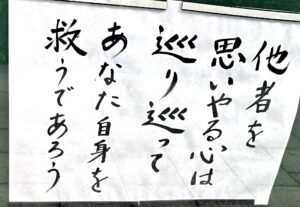 他者を
思いやる心は
巡り巡って
あなた自身を
救うであろう